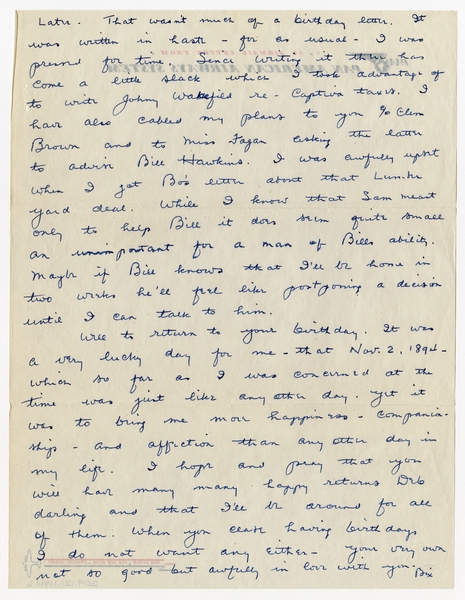 Later. That wasn't much of a birthday letter. It
was written in haste - for as usual - I was
pressed for time. Since writing it there has
come a little slack which I took advantage of
to write Johny Wakefield re - Captiva taxes. I
have also cabled my plans to you c/o Clem
Brown and to Miss Fagan asking the latter
to advise Bill Hawkins. I was awfully upset
when I got Bo's letter about that Lumber
yard deal. While I know that Sam meant
only to help Bill it does seem quite small
an unimportant for a man of Bills ability.
Maybe if Bill knows that I'll be home in
two weeks he'll feel like postponing a decision
until I can talk to him.
Well to return to your birthday. It was
a very lucky day for me - that Nov. 2, 1894 -
which so far as I was concerned at the
time was just like any other day. yet it
was to bring me more happiness - companion-
ship - and affection than any other day in
my life. I hope and pray that you
will have many many happy returns Deb
darling and that I'll be around for all
of them. When you cease having birthdays
I do not want any either - your very own
not so good but awfully in love with you. Bix
PAN AMERICAN AIRWAYS SYSTEM